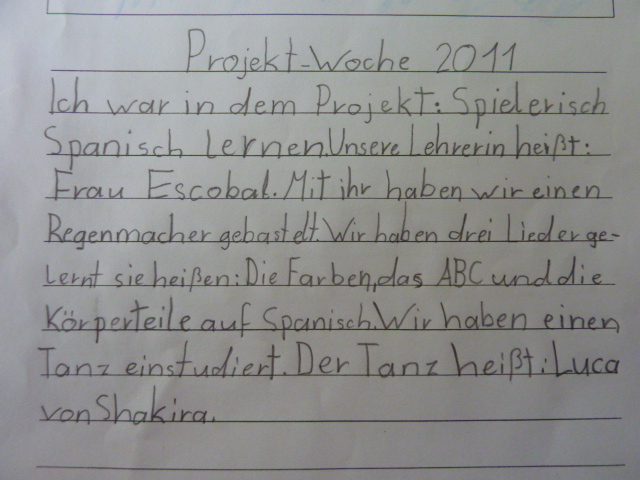 Projekt-Woche 2011
Ich war in dem Projekt: Spielerisch
Spanisch lernen. Unsere Lehrerin heißt:
Frau Escobal. Mit ihr haben wir einen
Regenmacher gebastelt. Wir haben drei Lieder ge-
lernt sie heißen: Die Farben, das ABC und die
Körperteile auf Spanisch. Wir haben einen
Tanz einstudiert. Der Tanz heißt: Luca
von Shakira.